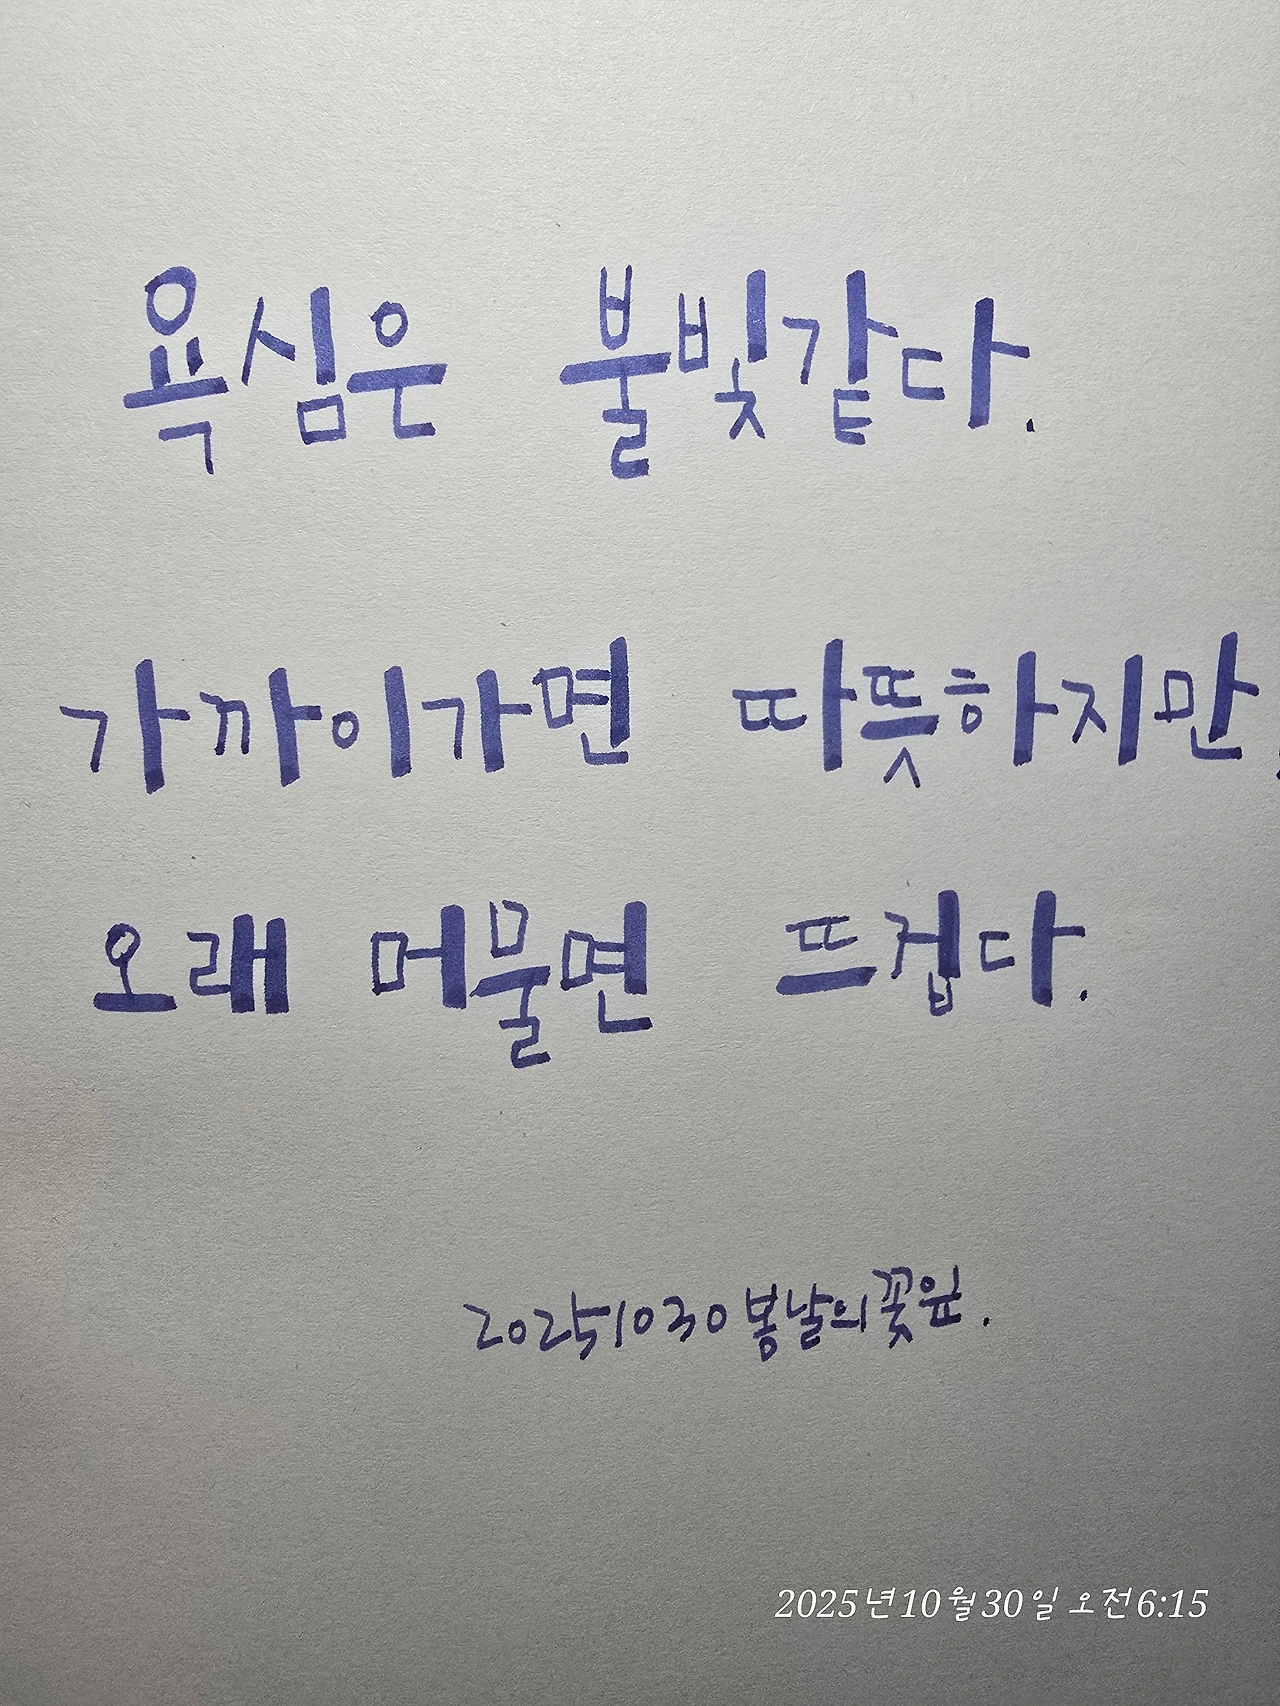 욕심은 불빛같다.
가까이가면 따뜻하지만,
오래 머물면 뜨겁다.
20251030 봄날의꽃잎.
2025년 10월 30일 오전 6:15